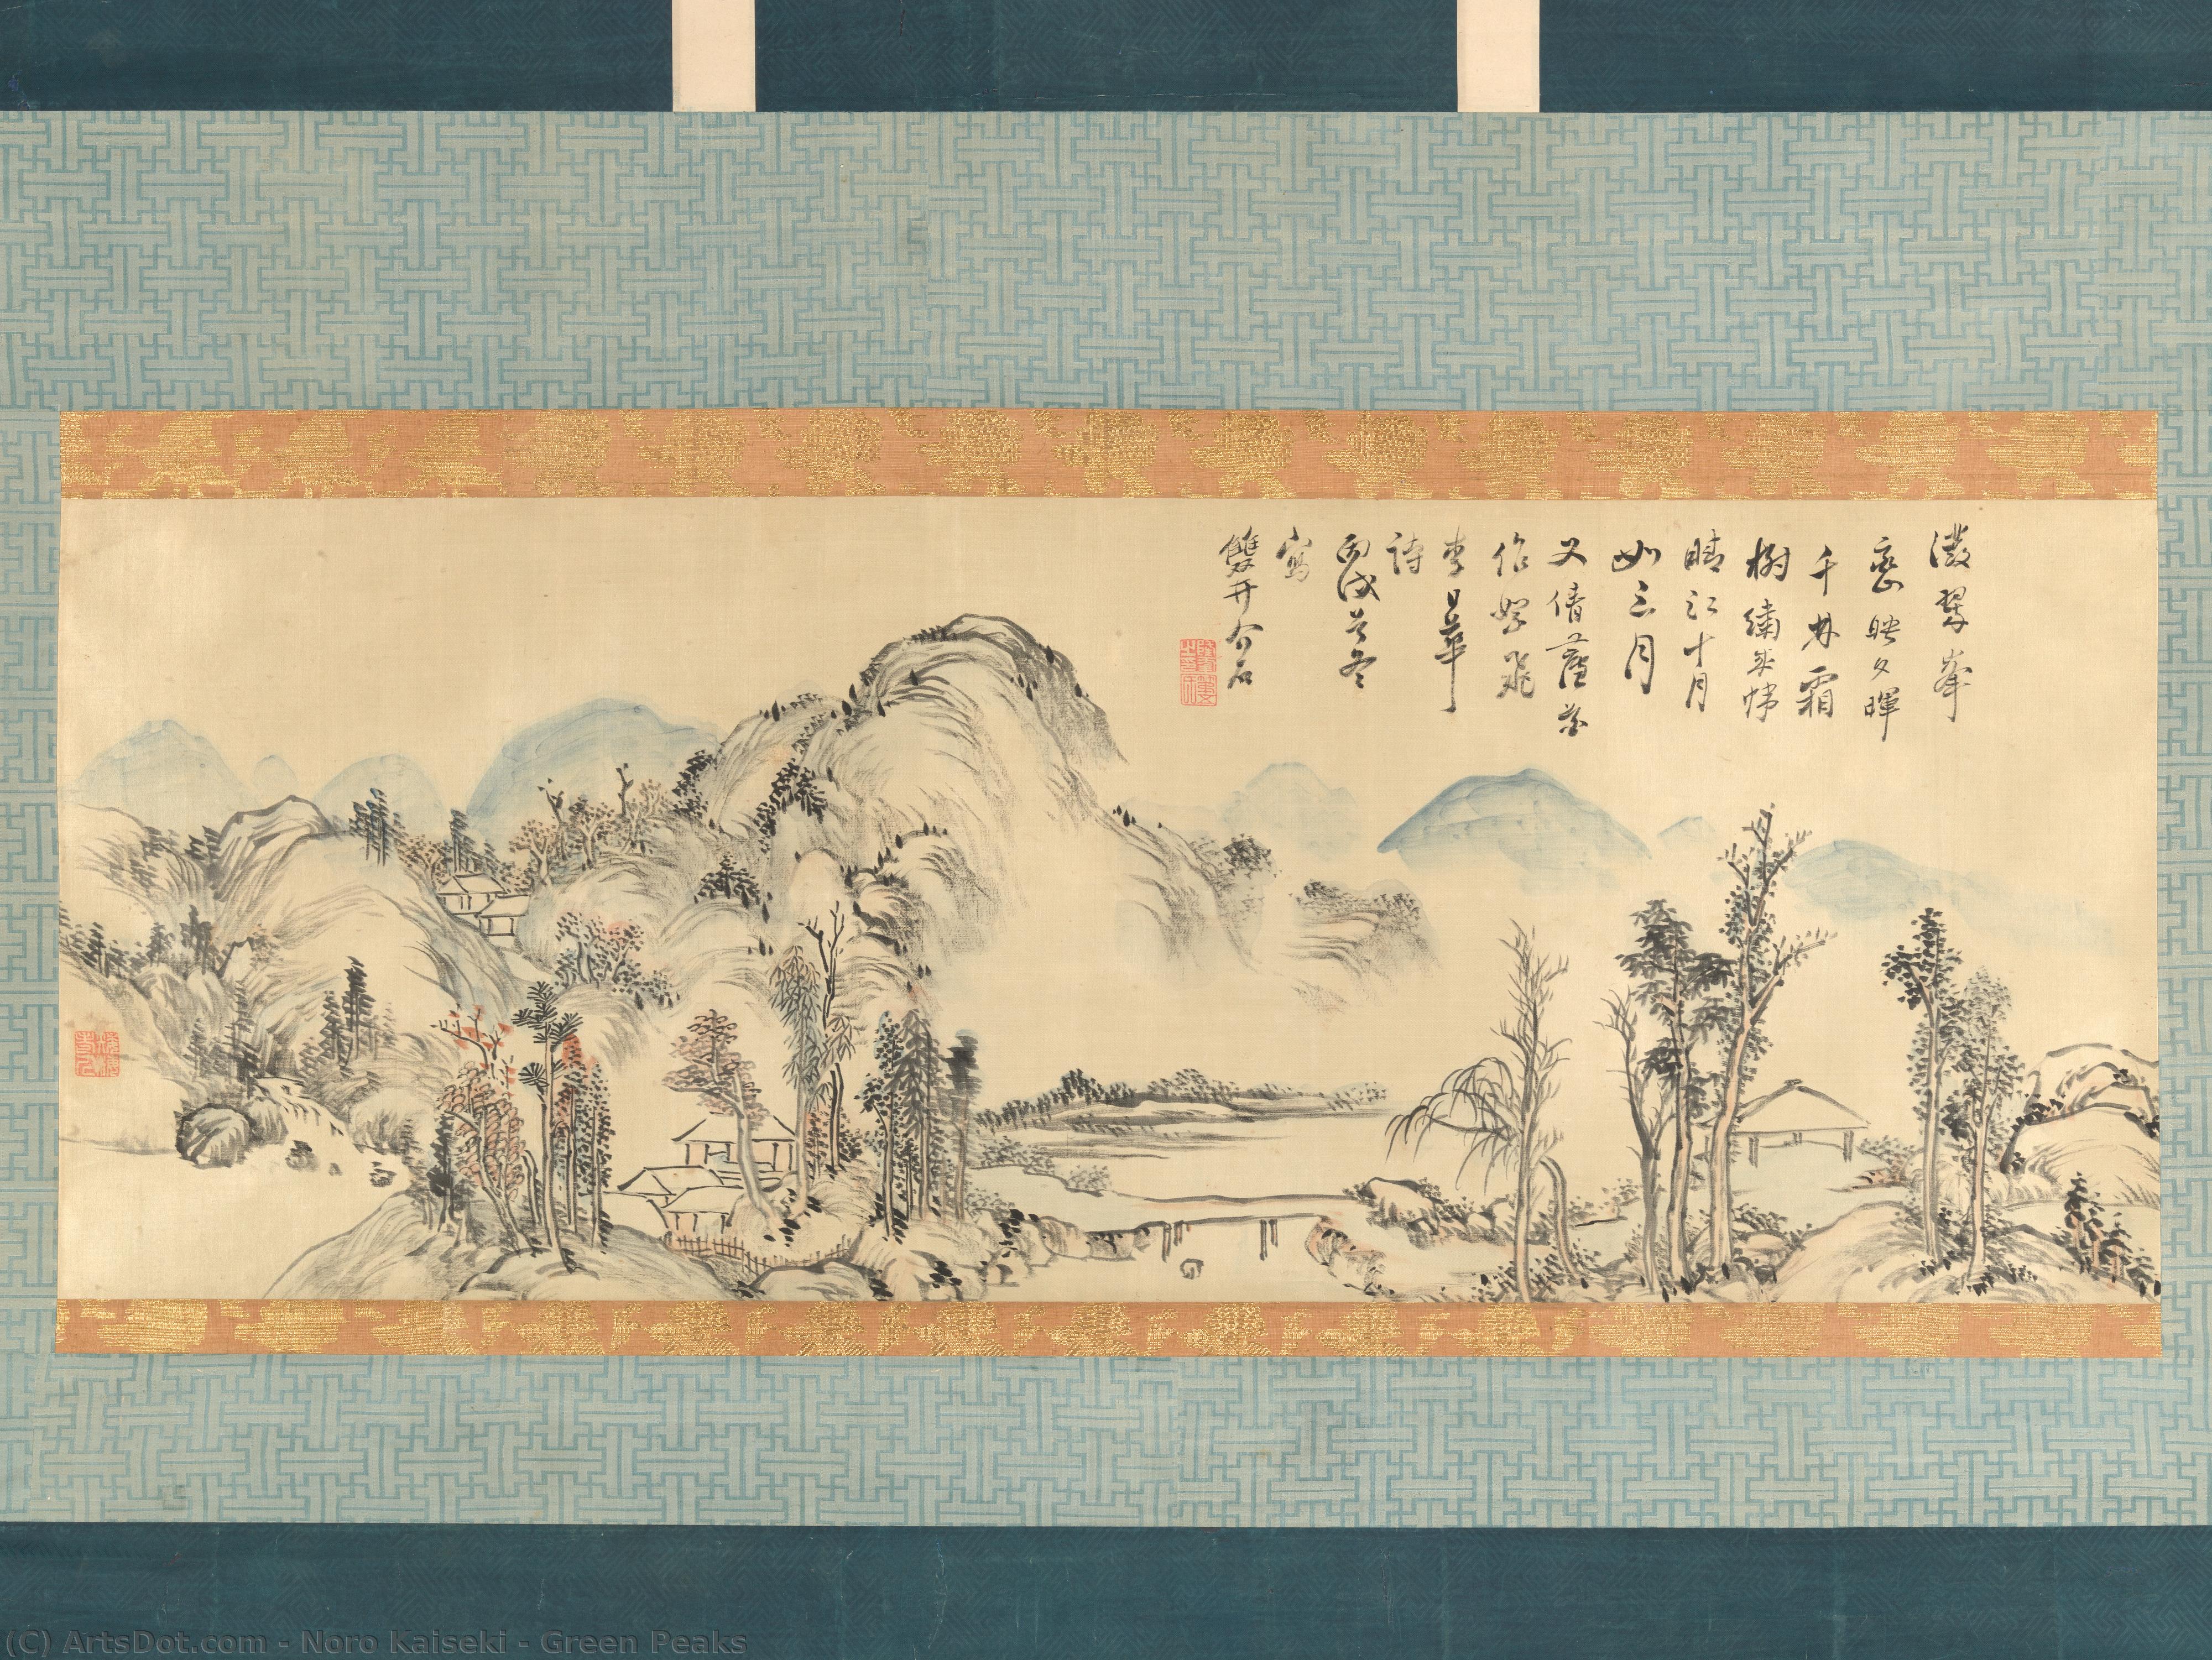 潑翠峯
巒映夕暉
千林霜
樹繡成幃
晴江十月
如三月
又倩蘆花
作絮飛
李日華
詩
丙戌冬
寫
雙井介石
(C) ArtsDot.com - Noro Kaiseki - Green Peaks